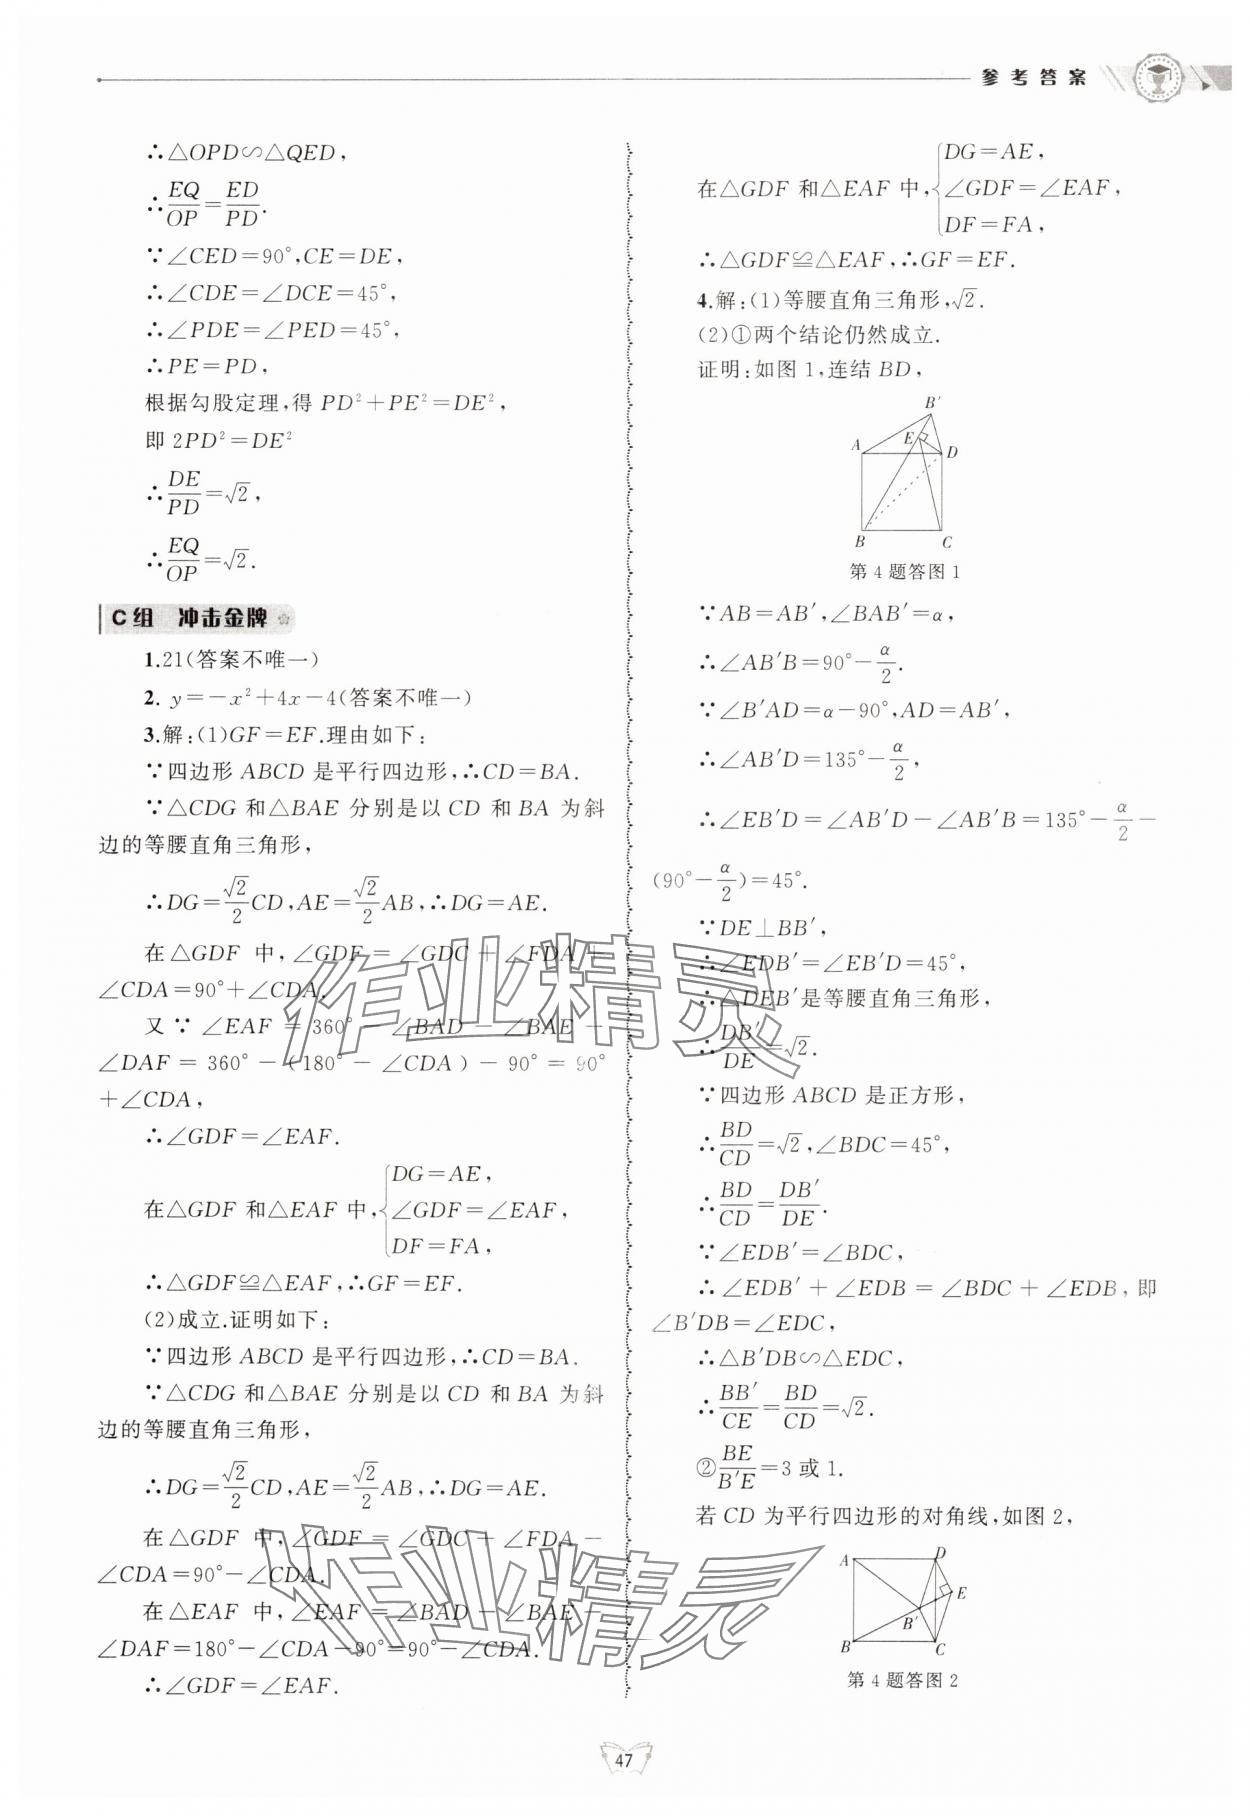 参考答案
∴△OPD∽△QED,
∴EQ/OP=ED/PD.
∵∠CED=90°,CE=DE,
∴∠CDE=∠DCE=45°,
∴∠PDE=∠PED=45°,
∴PE=PD,
根据勾股定理,得 PD²+PE²=DE²,
即 2PD²=DE²
∴DE/PD=√2,
∴EQ/OP=√2.
C组 冲击金牌
1.21(答案不唯一)
2. y=-x²+4x-4(答案不唯一)
3.解:(1)GF=EF.理由如下:
∵四边形 ABCD 是平行四边形,∴CD=BA.
∵△CDG 和△BAE 分别是以 CD 和 BA 为斜
边的等腰直角三角形,
∴DG=√2/2CD,AE=√2/2AB,∴DG=AE.
在△GDF 中,∠GDF=∠GDC+∠FDA+
∠CDA=90°+∠CDA.
又∵∠EAF=360°-∠BAD-∠BAE-
∠DAF=360°-(180°-∠CDA)-90°=90°
+∠CDA,
∴∠GDF=∠EAF.
在△GDF 和△EAF 中,{DG=AE,
∠GDF=∠EAF,
DF=FA,
∴△GDF≌△EAF,∴GF=EF.
(2)成立.证明如下:
∵四边形 ABCD 是平行四边形,∴CD=BA.
∵△CDG 和△BAE 分别是以 CD 和 BA 为斜
边的等腰直角三角形,
∴DG=√2/2CD,AE=√2/2AB,∴DG=AE.
在△GDF 中,∠GDF=∠GDC+∠FDA-
∠CDA=90°-∠CDA.
在△EAF 中,∠EAF=∠BAD-∠BAE-
∠DAF=180°-∠CDA-90°=90°-∠CDA.
∴∠GDF=∠EAF.
在△GDF 和△EAF 中,{DG=AE,
∠GDF=∠EAF,
DF=FA,
∴△GDF≌△EAF,∴GF=EF.
4.解:(1)等腰直角三角形,√2.
(2)①两个结论仍然成立.
证明:如图1,连结BD,
B′
A E D
B C
第4题答图1
∵AB=AB′,∠BAB′=α,
∴∠AB′B=90°-α/2.
∵∠B′AD=α-90°,AD=AB′,
∴∠AB′D=135°-α/2,
∴∠EB′D=∠AB′D-∠AB′B=135°-α/2-
(90°-α/2)=45°.
∵DE⊥BB′,
∴∠EDB′=∠EB′D=45°,
∴△DEB′是等腰直角三角形,
∴DB′/DE=√2.
∵四边形 ABCD 是正方形,
∴BD/CD=√2,∠BDC=45°,
∴BD/CD=DB′/DE.
∵∠EDB′=∠BDC,
∴∠EDB′+∠EDB=∠BDC+∠EDB,即
∠B′DB=∠EDC,
∴△B′DB∽△EDC,
∴BB′/CE=BD/CD=√2.
②BE/B′E=3或1.
若CD为平行四边形的对角线,如图2,
A D
E
B′
B C
第4题答图2
47
作业精灵
作业精灵